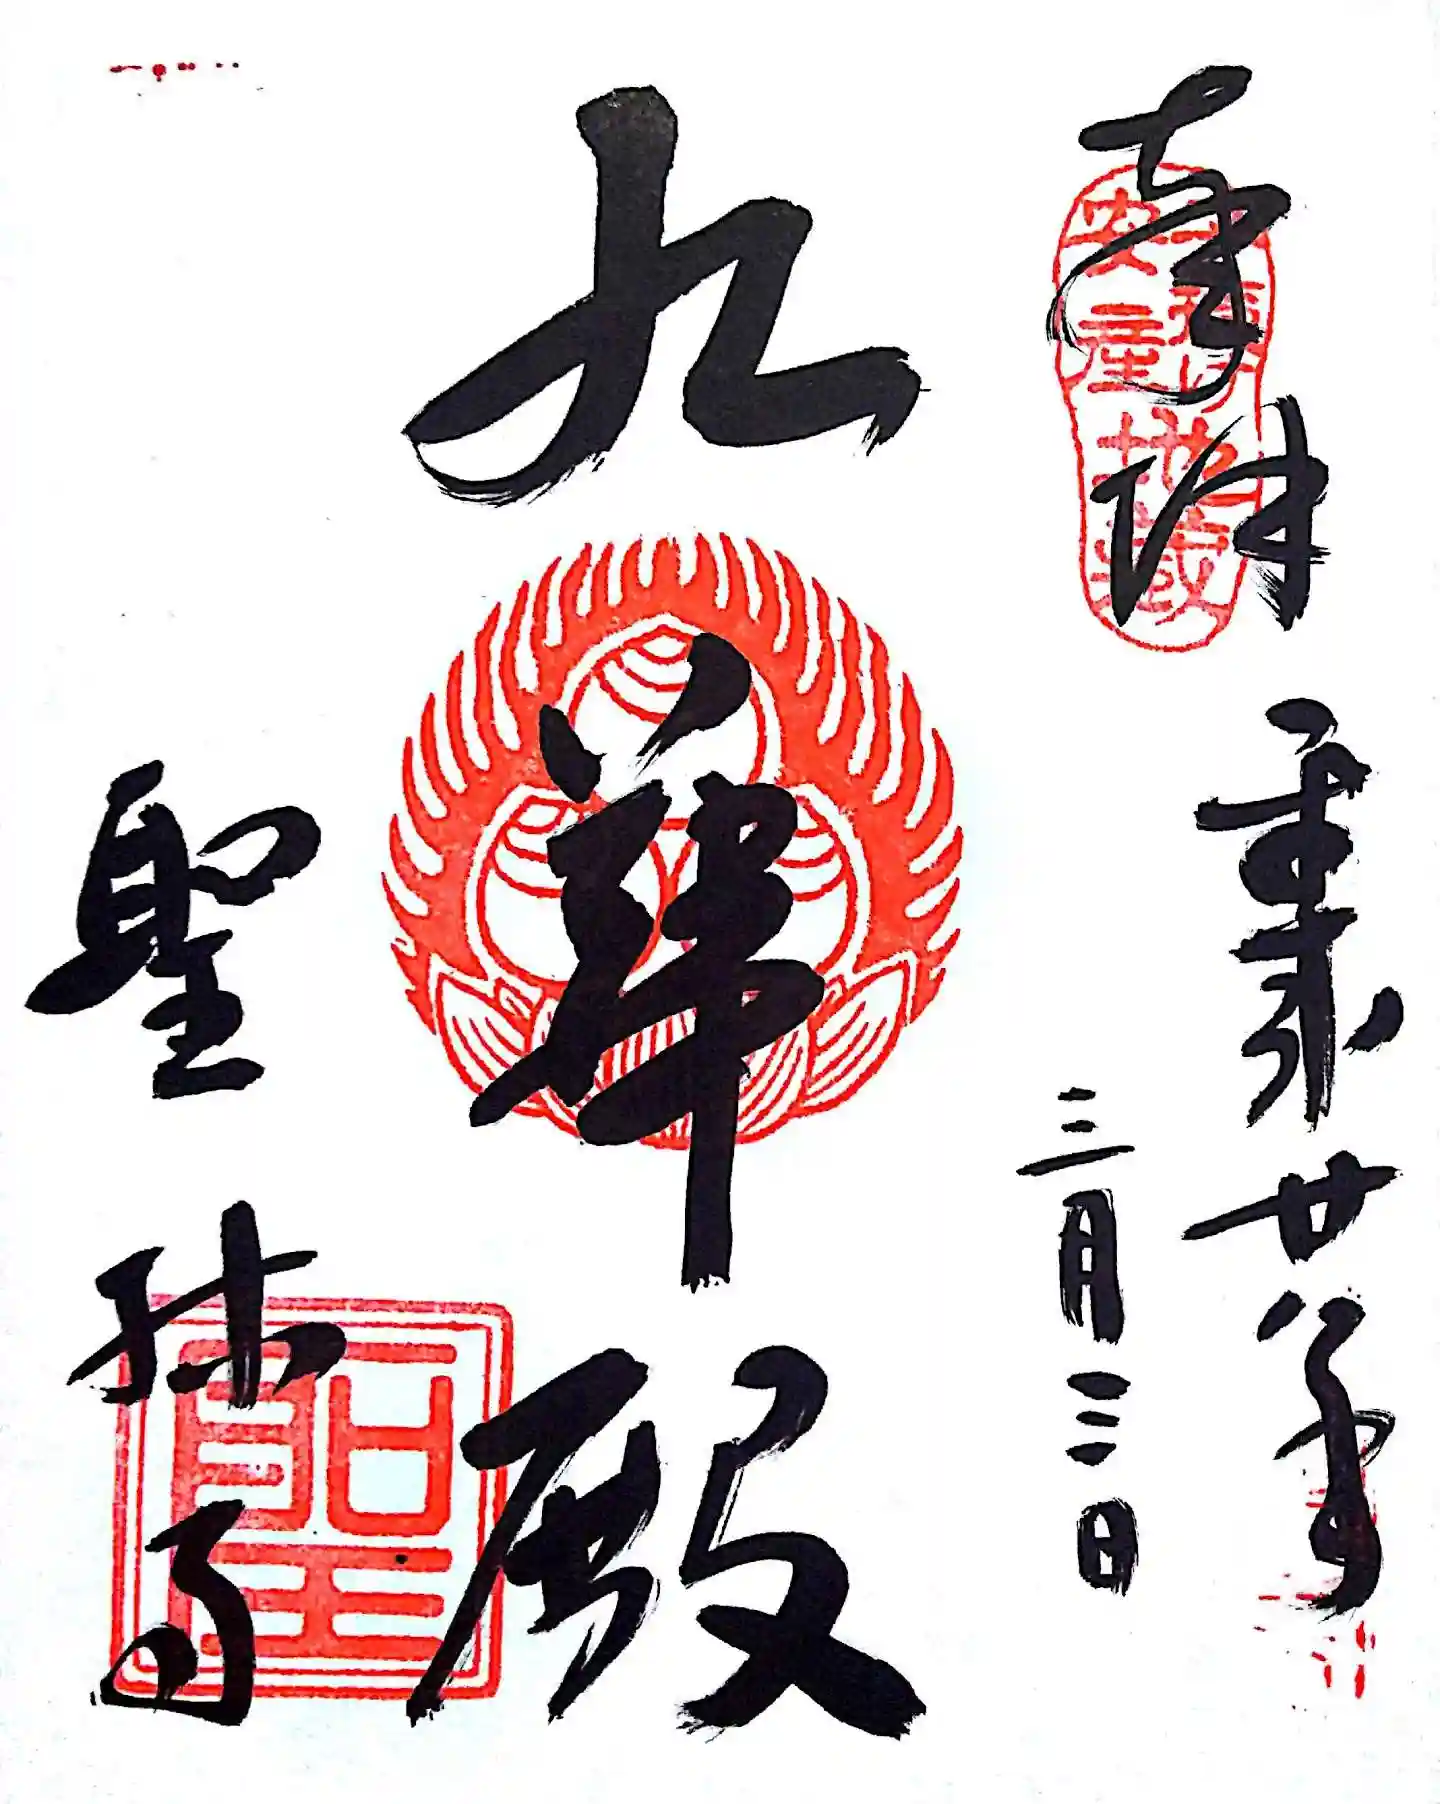 奉拝
廿八年
三月三日
安産地蔵
九華殿
聖林寺